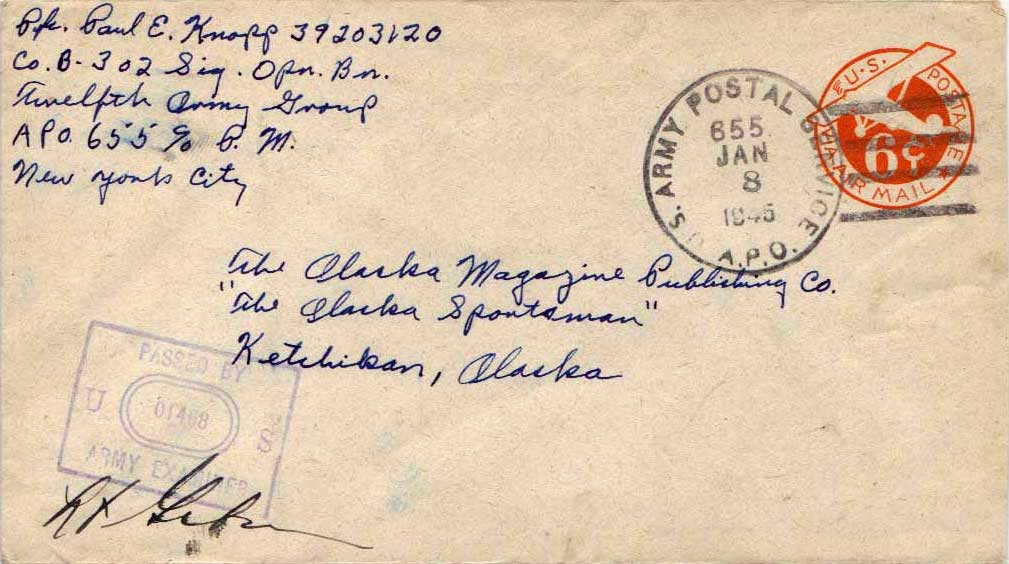 Pfc. Paul E. Knopp 39203120
Co. B - 302 Sig. Opn. Bn.
Twelfth Army Group
APO. 655 c/o P. M.
New York City
U.S. ARMY POSTAL SERVICE
655
JAN
8
1945
A.P.O.
U.S. POSTAGE
6¢
VIA AIR MAIL
The Alaska Magazine Publishing Co.
"The Alaska Sportsman"
Ketchikan, Alaska
PASSED BY
U 01468 S
ARMY EXAMINER